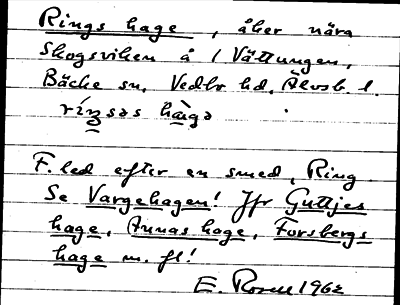 Rings hage, åker nära
Skogsviken å / Vättungen,
Bäcke sn, Vedbo hd, Älvsb. l.
ríŋsəs hàgə
F. led efter en smed, Ring.
Se Vargehagen! Jfr Guttjes
hage, Annas hage, Forsbergs
hage m. fl!
E. Rosell 1962